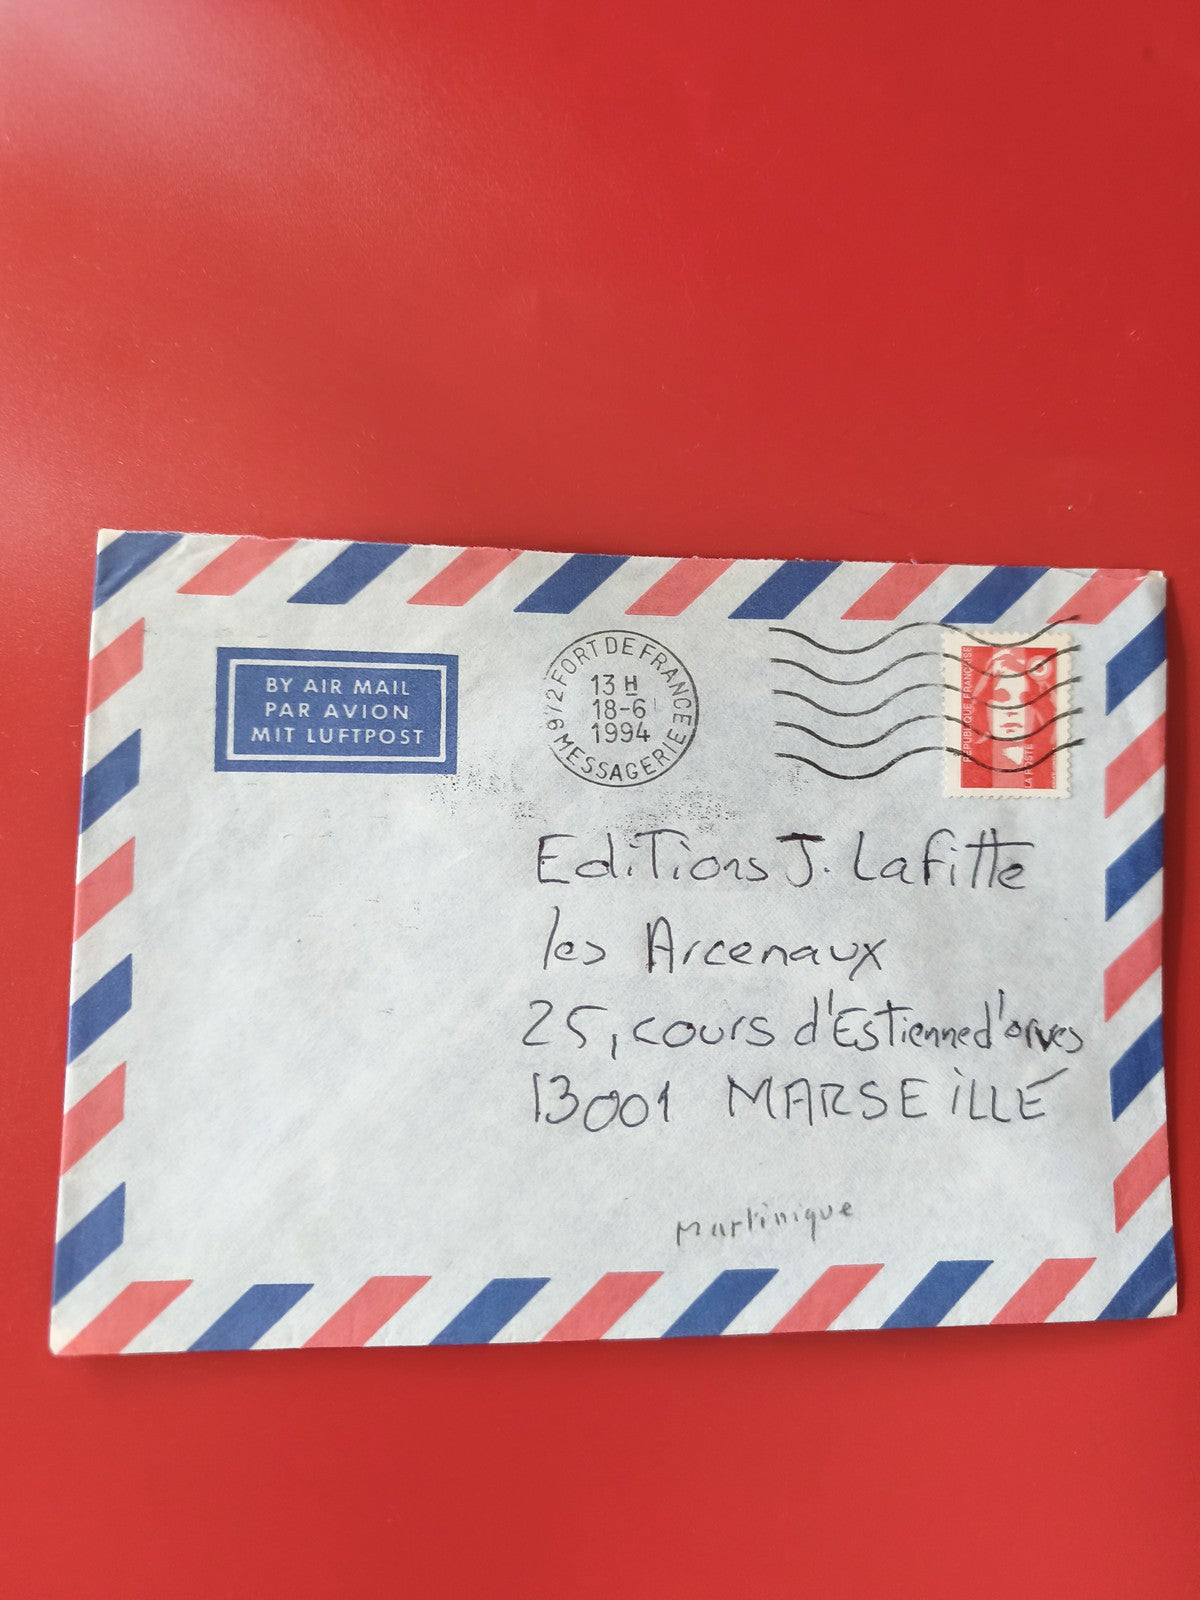 BY AIR MAIL
PAR AVION
MIT LUFTPOST
972 FORT DE FRANCE
13 H
18-6
1994
MESSAGERIE
REPUBLIQUE FRANÇAISE
LA POSTE
Editions J. Lafitte
les Arcenaux
25, cours d'Estienne d'orves
13001 MARSEiLLE
Martinique